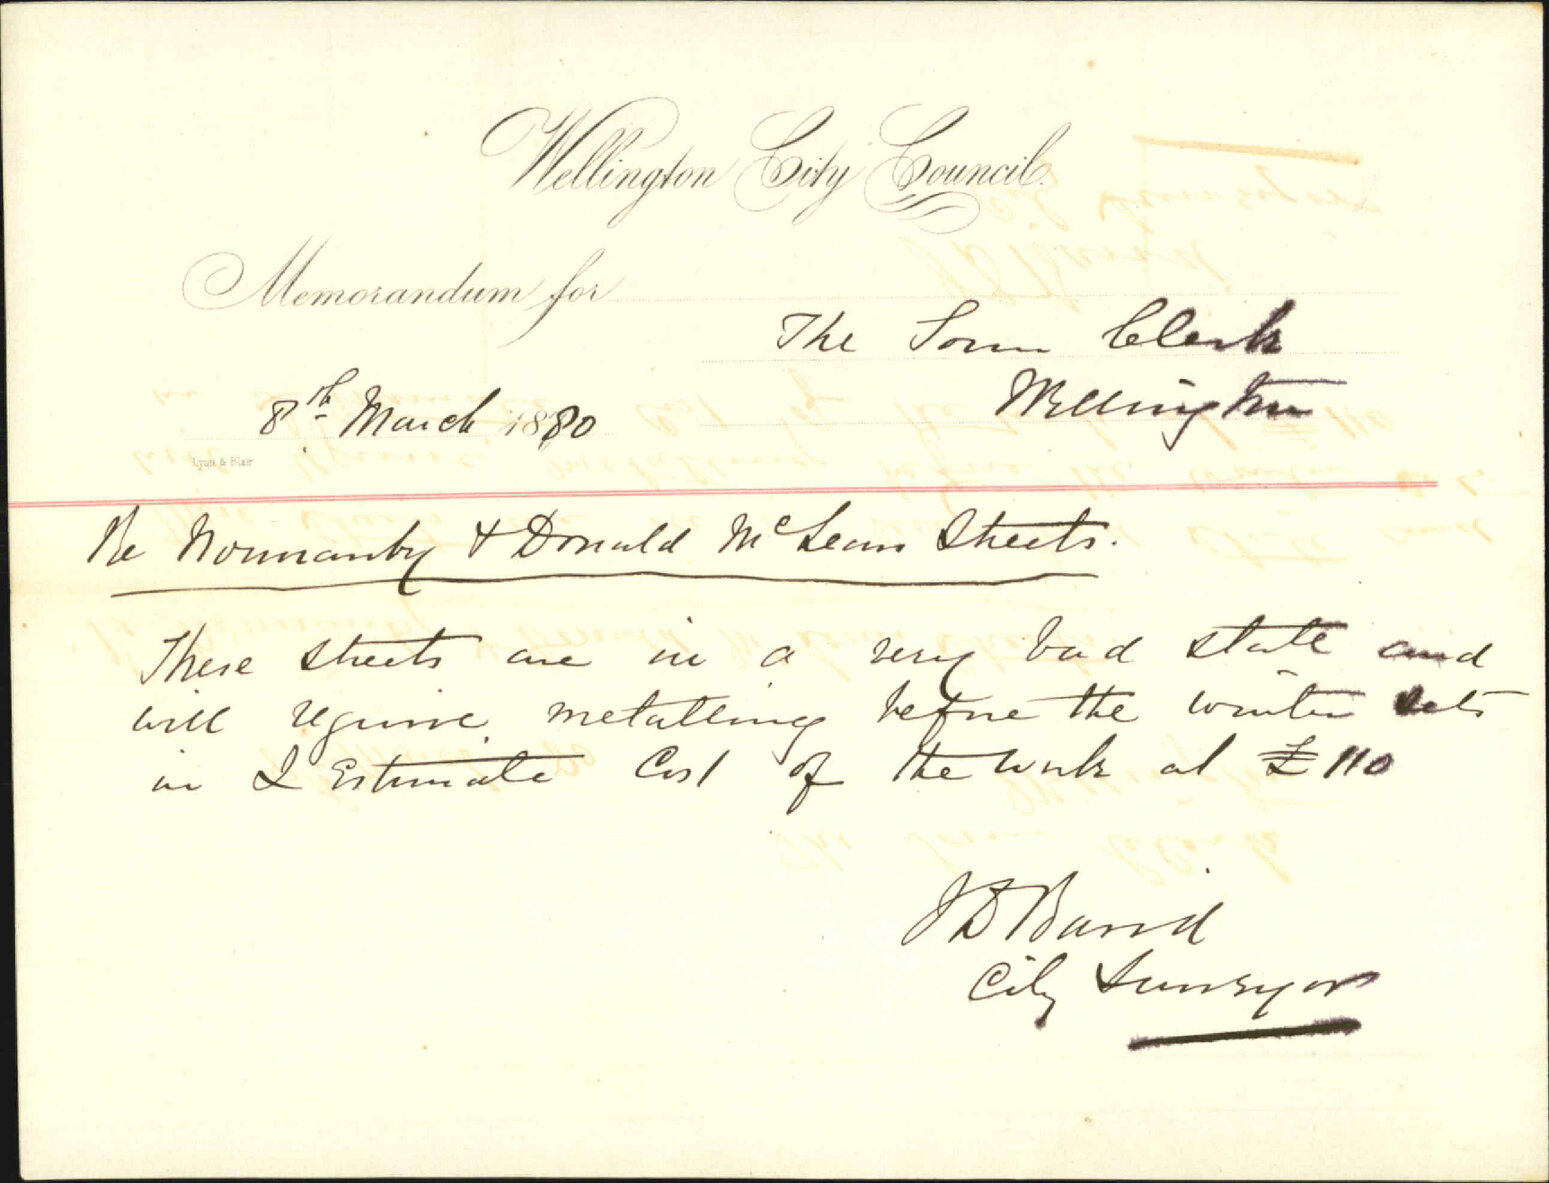 Wellington City Council.
Memorandum for
The Town Clerk
Wellington
8th March 1880
Lyon & Blair
Re Normanby & Donald McLean Streets.
These streets are in a very bad state and
will require metalling before the winter sets
in I Estimate Cost of the work at £110
J D Baird
City Surveyor